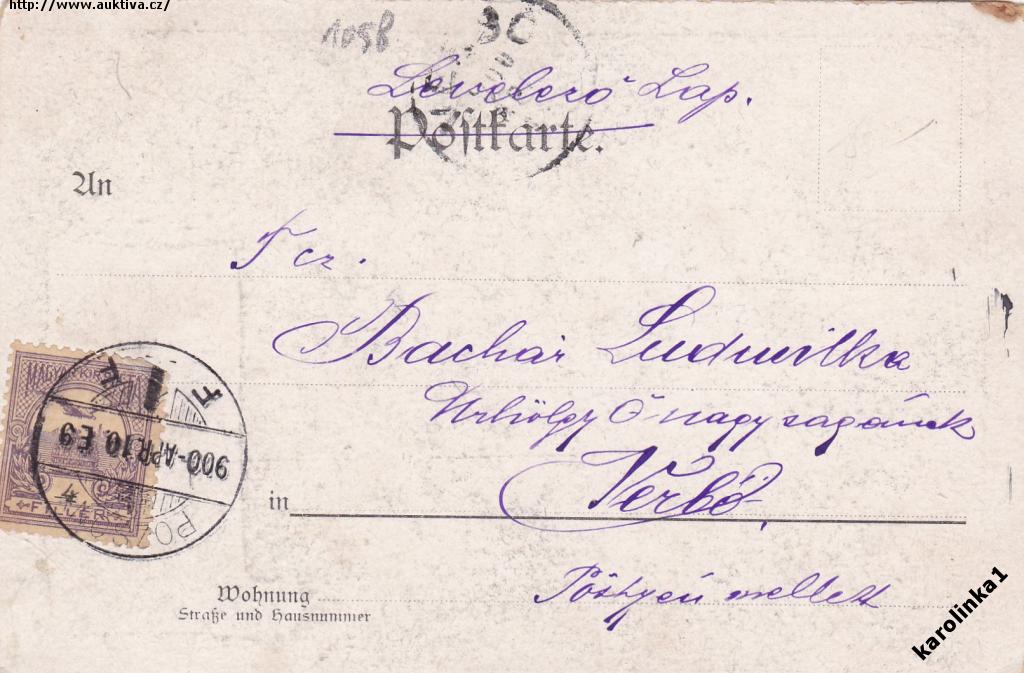 http://www.auktiva.cz/
1098
Levelező Lap.
Postkarte.
An
Tcz.
Bachár Ludmilka
Urhölgy Ő nagyságának
in Verbó
Pöstyén mellett
Wohnung
Straße und Hausnummer
MAGYAR KIR
4
FILLÉR
900-APR.10.E9
karolinka1